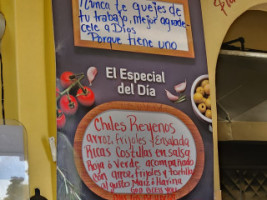 Nunca te quejes de
tu trabajo, mejor agrade-
cele a Dios
Porque tiene uno
El Especial
del Día
Chiles Reyenos
arroz, frijoles y Ensalada
Ricas Costillas en salsa
Roja o verde acompañado
con arroz, frijoles y tortilla
al gusto Maíz o Harina